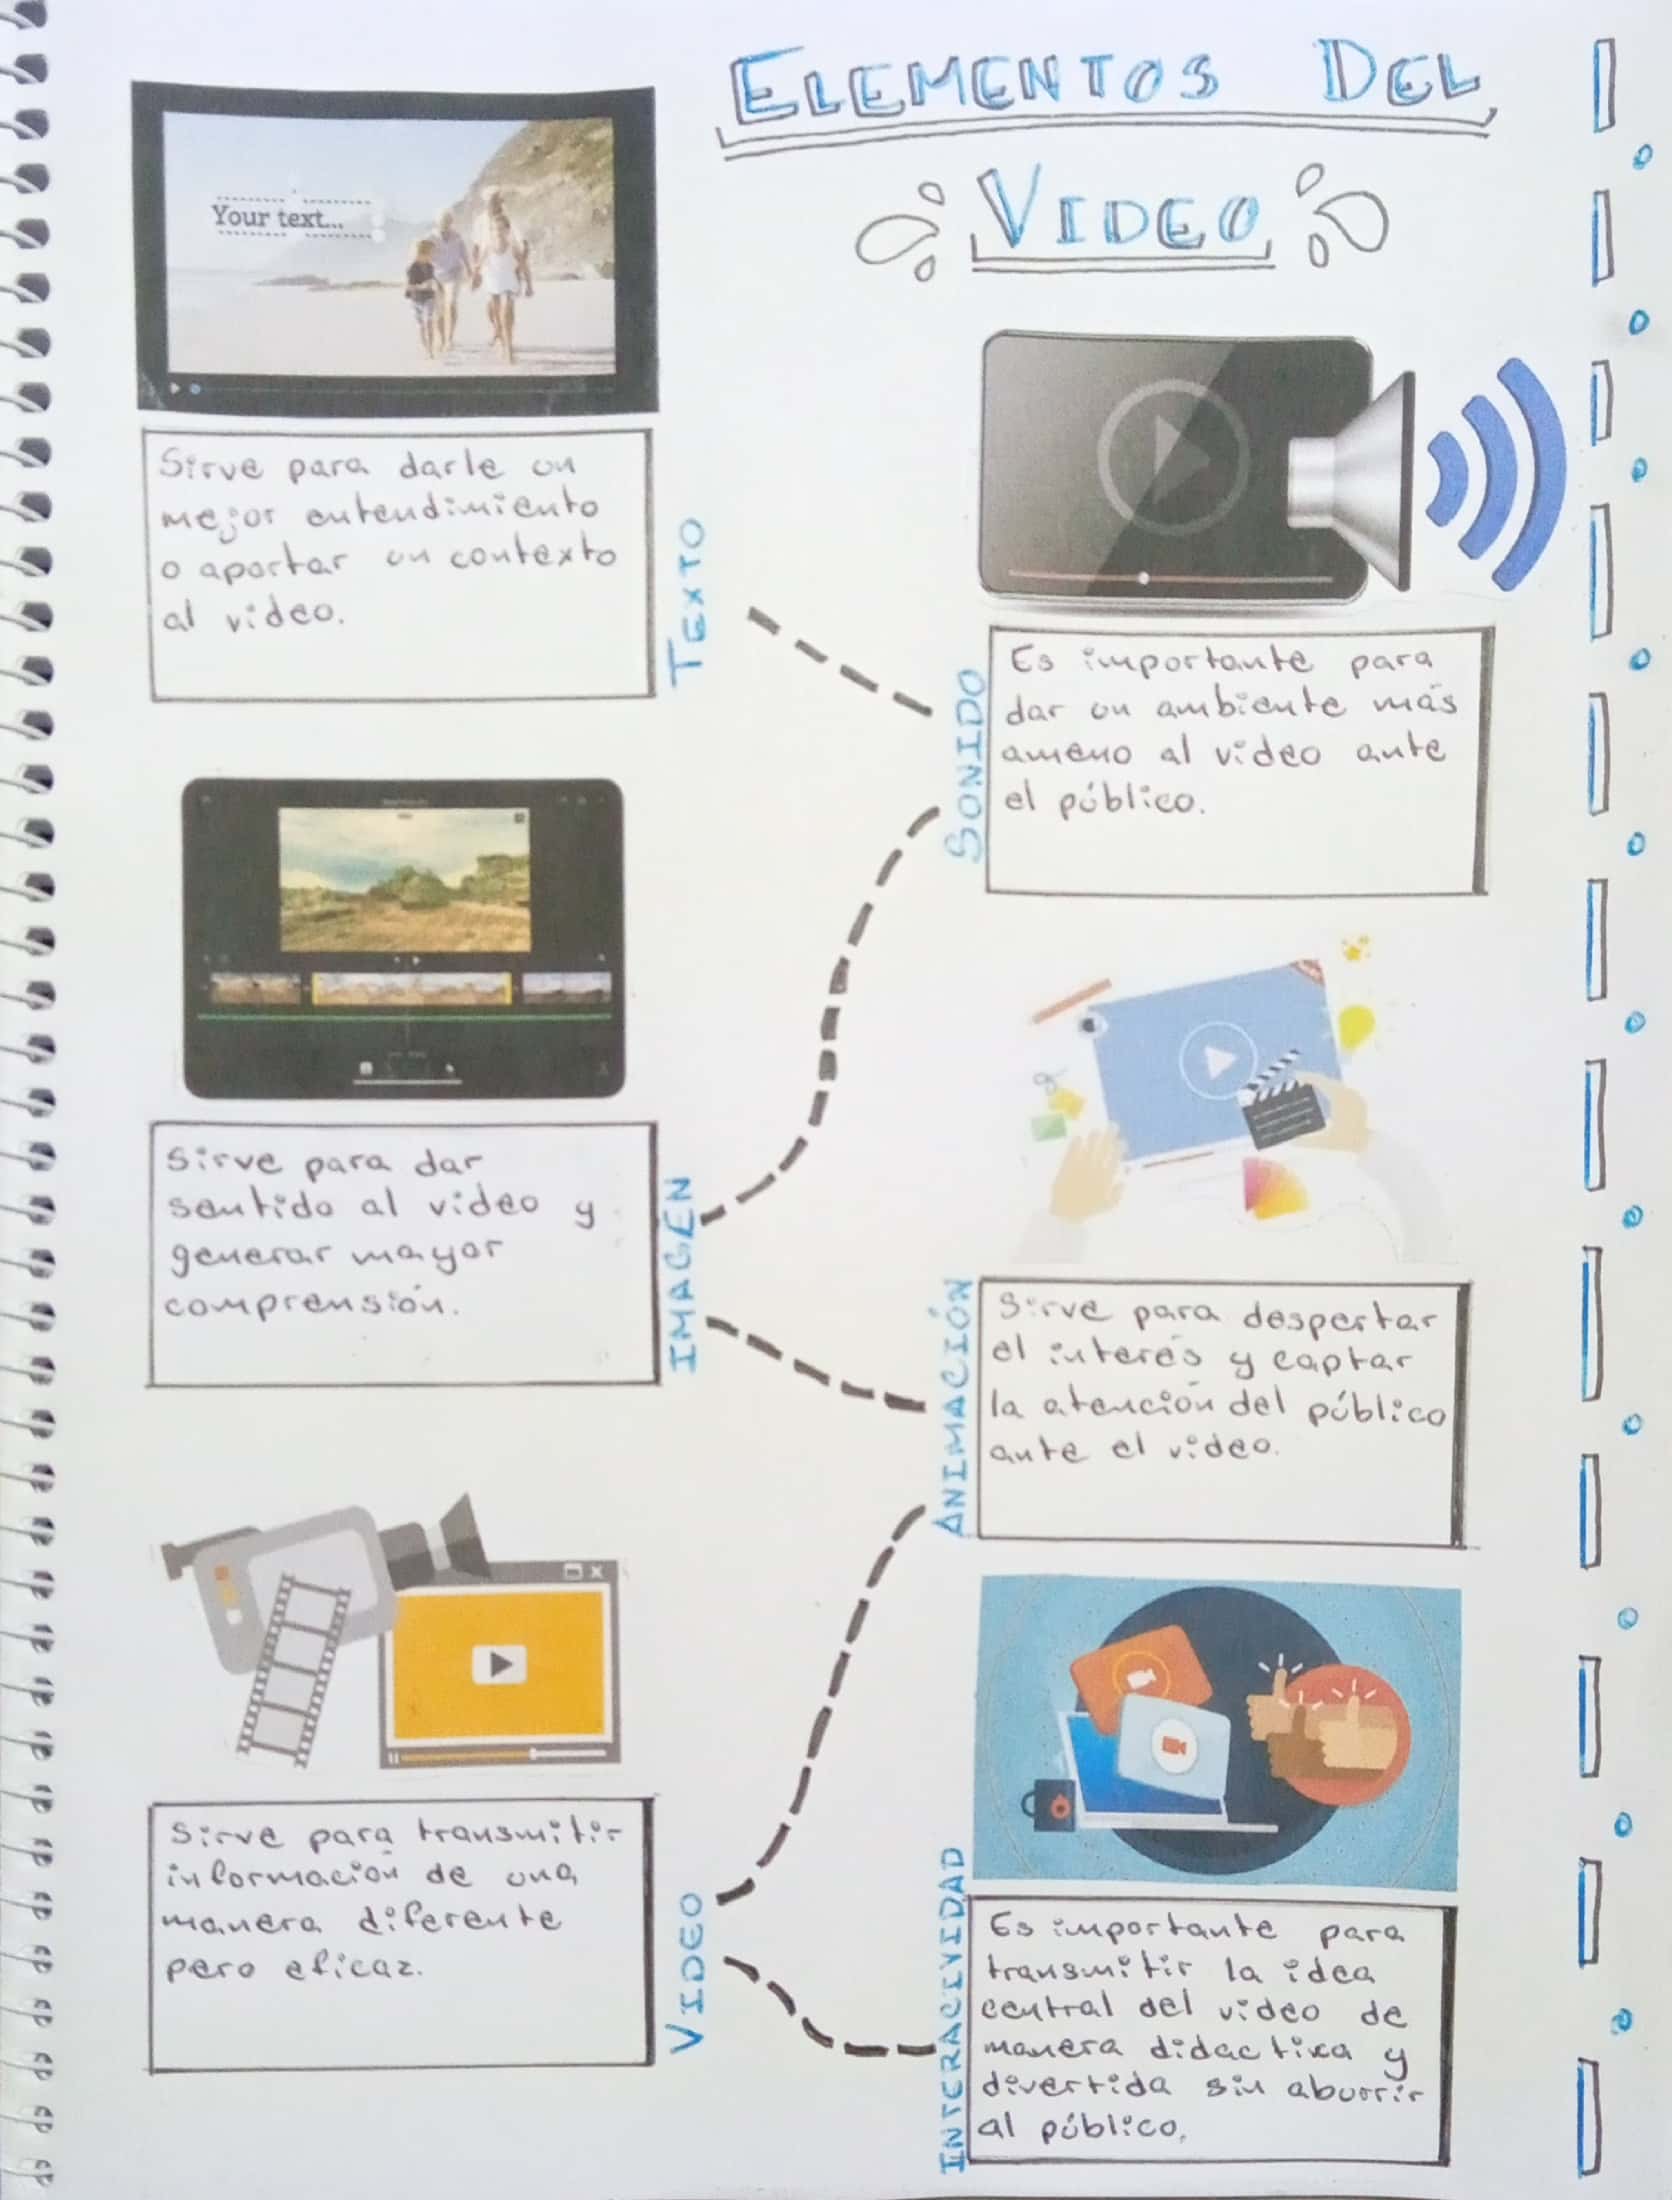 ELEMENTOS DEL
VIDEO
Your text...
Sirve para darle un
mejor entendimiento
o aportar un contexto
al video.
TEXTO
Es importante para
dar un ambiente más
ameno al video ante
el público.
SONIDO
Sirve para dar
sentido al video y
generar mayor
comprensión.
IMAGEN
Sirve para despertar
el interés y captar
la atención del público
ante el video.
ANIMACIÓN
Sirve para transmitir
información de una
manera diferente
pero eficaz.
VIDEO
Es importante para
transmitir la idea
central del video de
manera didactica y
divertida sin aburrir
al público.
INTERACIVIDAD